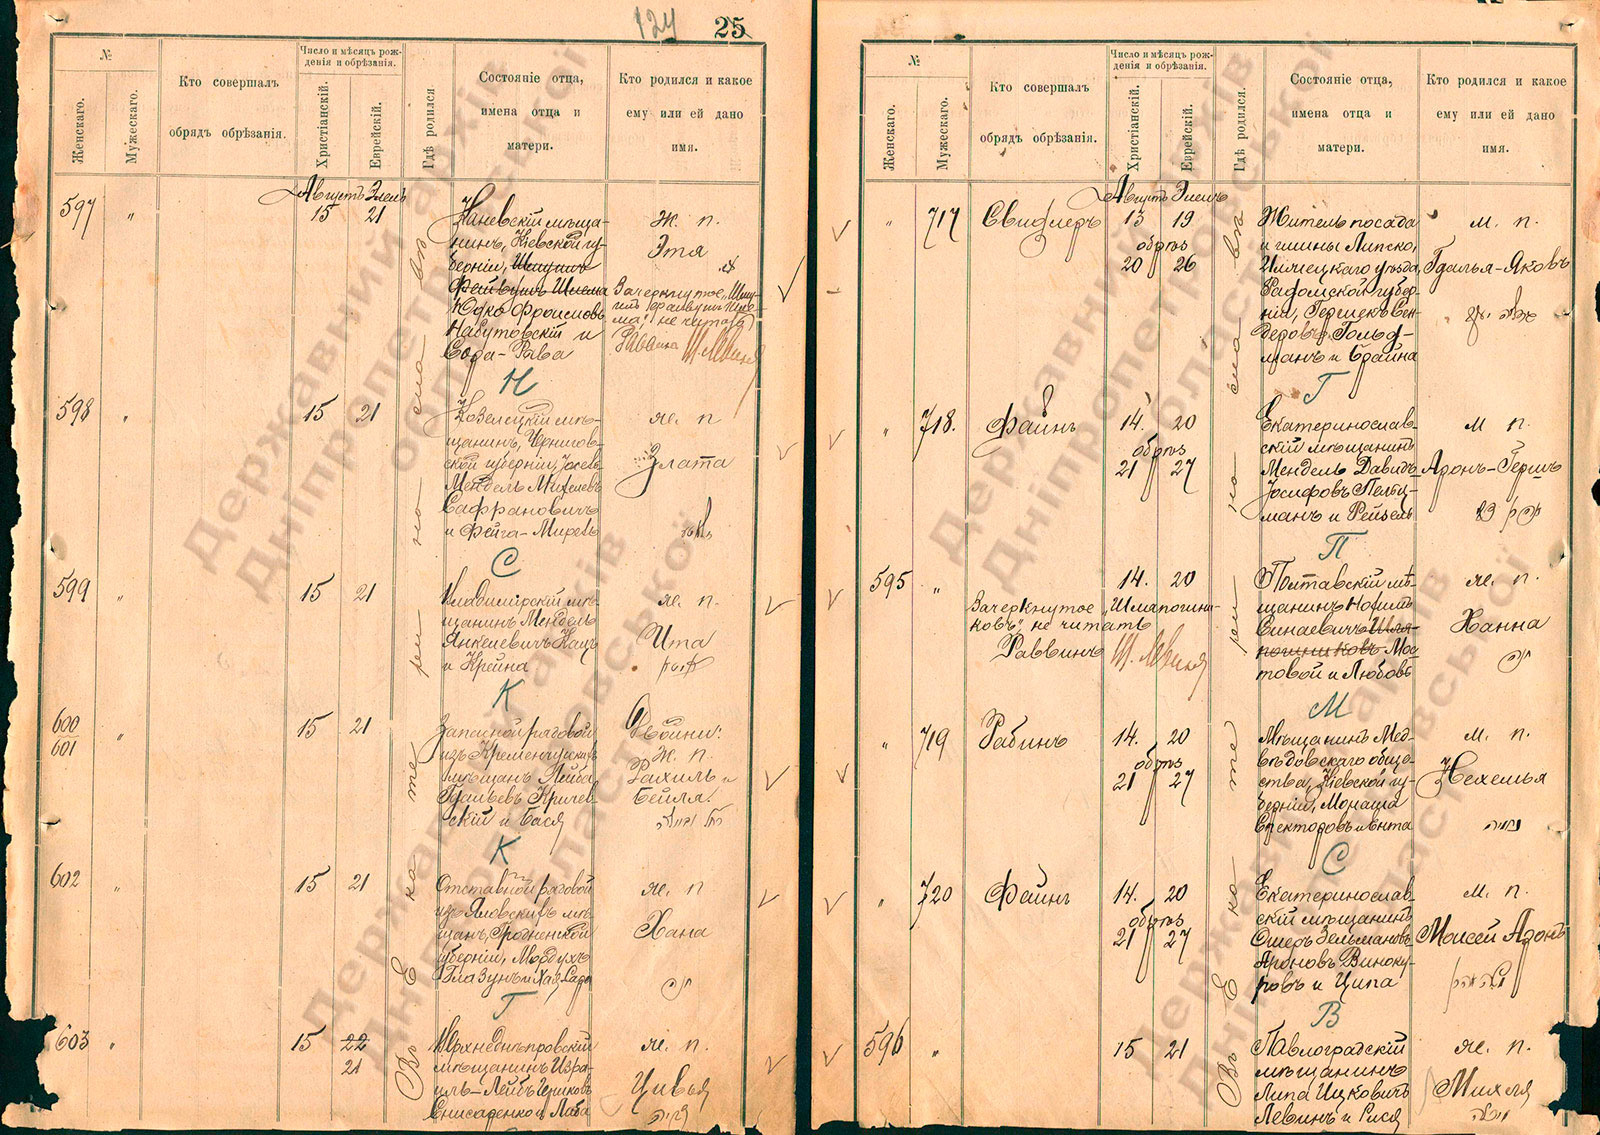 124 25
№
Женскаго.
Мужескаго.
Кто совершалъ
обрядъ обрѣзанія.
Число и мѣсяцъ рож-
денія и обрѣзанія.
Христіанскій.
Еврейскій.
Гдѣ родился
Состояніе отца,
имена отца и
матери.
Кто родился и какое
ему или ей дано
имя.
Августъ Элелъ
597 " 15 21
Каневскій мѣща-
нинъ, Кіевской гу-
берніи, Шмуилъ
Файвушъ Шлема
Юдко Фроимовъ
Набутовскій и
Сора-Рива
Ж. п.
Этя
Зачеркнутое „Шму-
илъ Файвушъ Шле-
ма" не читать
Раввинъ Ш. Левинъ
Н
598 " 15 21
Козелецкій мѣ-
щанинъ, Чернигов-
ской губерніи, Іосевъ
Мендель Михелевъ
Сафрановичъ
и Фейга-Миревъ
же. п
Злата
С
599 " 15 21
Владимірскій мѣ-
щанинъ Мендель
Янкелевичъ Кацъ
и Крейна
же. п.
Ита
К
600
601 " 15 21
Запасной рядовой
изъ Кременчугскихъ
мѣщанъ Лейба
Гдальевъ Кричев-
скій и Бася
Двойни:
Ж. п.
Рахиль и
Бейла.
К
602 " 15 21
Отставной рядовой
изъ Яловскихъ мѣ-
щанъ, Гродненской
губерніи, Мордухъ
Глазунъ и Хая-Сара
же. п
Хана
Г
603 " 15 22
21
Верхнеднѣпровскій
мѣщанинъ Изра-
иль-Лейбъ Гершковъ
Снисаренко и Либа
же. п.
Цивья
Въ Екатеринославѣ
№
Женскаго.
Мужескаго.
Кто совершалъ
обрядъ обрѣзанія.
Число и мѣсяцъ рож-
денія и обрѣзанія.
Христіанскій.
Еврейскій.
Гдѣ родился.
Состояніе отца,
имена отца и
матери.
Кто родился и какое
ему или ей дано
имя.
Августъ Элелъ
" 717 Свидлеръ 13 19
обрѣз
20 26
Житель посада
и гмины Липско,
Илжецкаго уѣзда,
Радомской губер-
ніи, Гершекъ Сен-
деровъ Гольд-
манъ и Брайна
м. п.
Гдалья-Яковъ
Г
" 718. Файнъ 14. 20
обрѣз
21 27
Екатеринослав-
скій мѣщанинъ
Мендель Давидъ
Іосифовъ Пельц-
манъ и Рейзель
м п.
Аронъ-Гершъ
П
595 " 14. 20
Зачеркнутое „Шлапогини-
ковъ", не читать
Раввинъ Ш. Левинъ
Полтавскій мѣ-
щанинъ Нофтель
Синаевичъ Шля-
погниковъ Мос-
товой и Любовь
же. п.
Ханна
М
" 719 Рабинъ 14. 20
обрѣз
21 27
Мѣщанинъ Мед-
вѣдовскаго обще-
ства, Кіевской гу-
берніи, Монаша
Спекторовъ и Ента
м. п.
Нехемья
С
" 720 Файнъ 14. 20
обрѣз
21 27
Екатеринослав-
скій мѣщанинъ
Ошеръ Зельмановъ
Ароновъ Виноку-
ровъ и Ципа
м. п.
Моисей Аронъ
В
596 " 15 21
Павлоградскій
мѣщанинъ
Липа Ицковичъ
Левинъ и Рися
же. п.
Михля
Въ Екатеринославѣ
Державний архів
Дніпропетровської
області